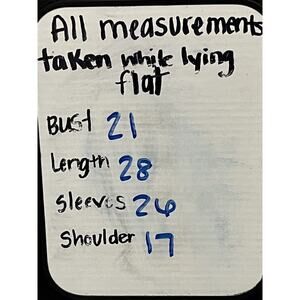 All measurements
taken while lying
flat
Bust 21
Length 28
Sleeves 26
Shoulder 17